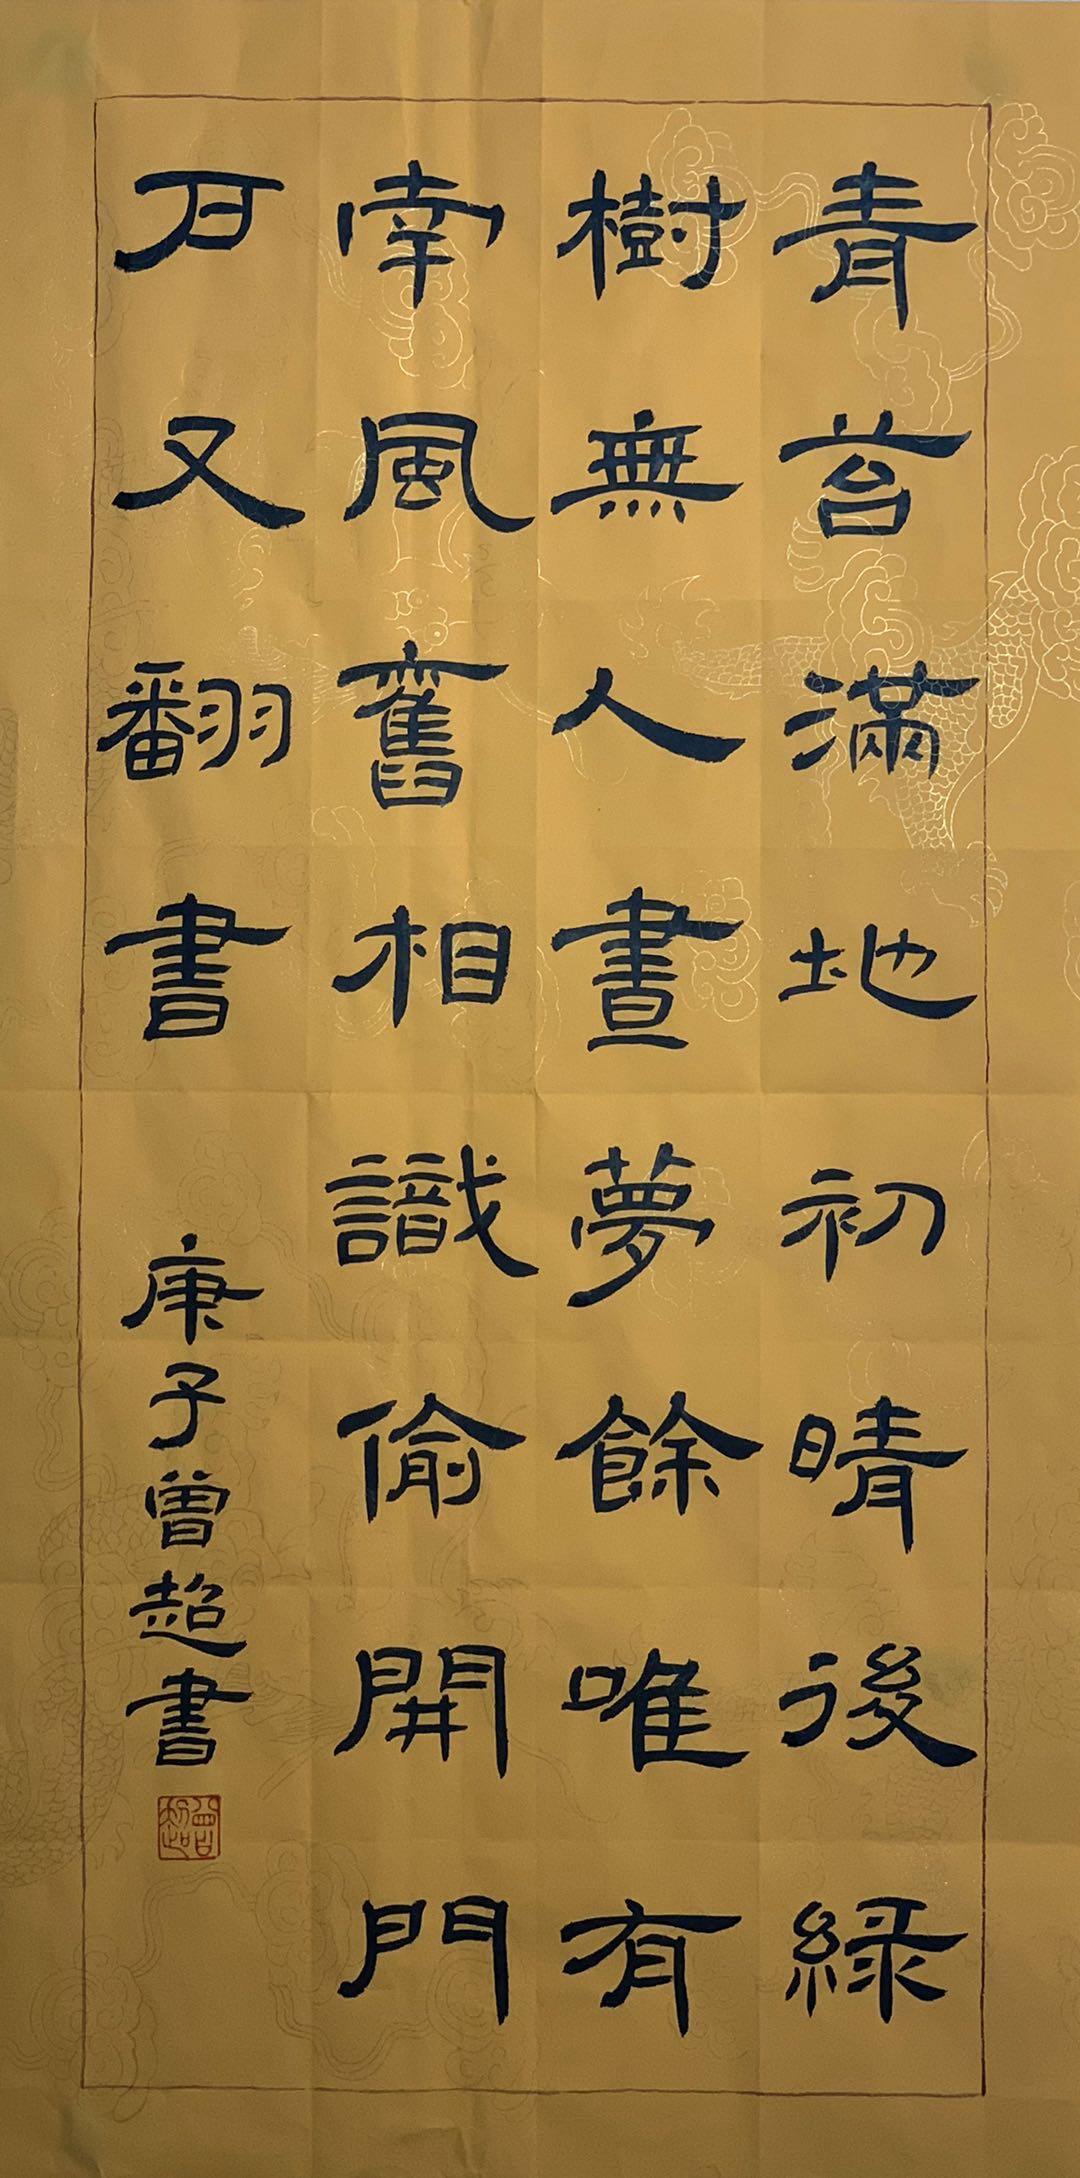 青苔滿地初晴後綠
樹無人晝夢餘唯有
南風舊相識偷開門
戶又翻書
庚子曾超書
曾超